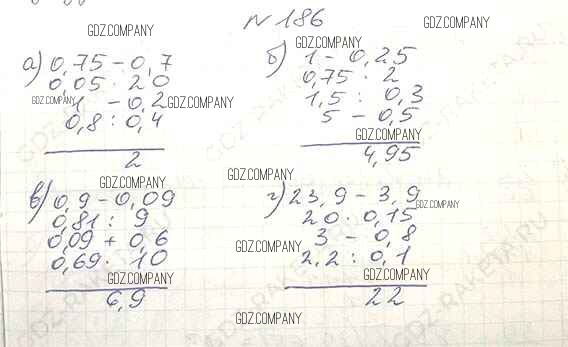 № 186
а) 0,75 - 0,7
0,05 · 20
1 - 0,2
0,8 : 0,4
2
б) 1 - 0,25
0,75 · 2
1,5 : 0,3
5 - 0,5
4,95
в) 0,9 - 0,09
0,81 : 9
0,09 + 0,6
0,69 · 10
6,9
г) 23,9 - 3,9
20 · 0,15
3 - 0,8
2,2 : 0,1
22
GDZ.COMPANY
GDZ.COMPANY
GDZ.COMPANY
GDZ.COMPANY
GDZ.COMPANY
GDZ.COMPANY
GDZ.COMPANY
GDZ.COMPANY
GDZ.COMPANY
GDZ.COMPANY
GDZ.COMPANY
GDZ.COMPANY
GDZ.COMPANY